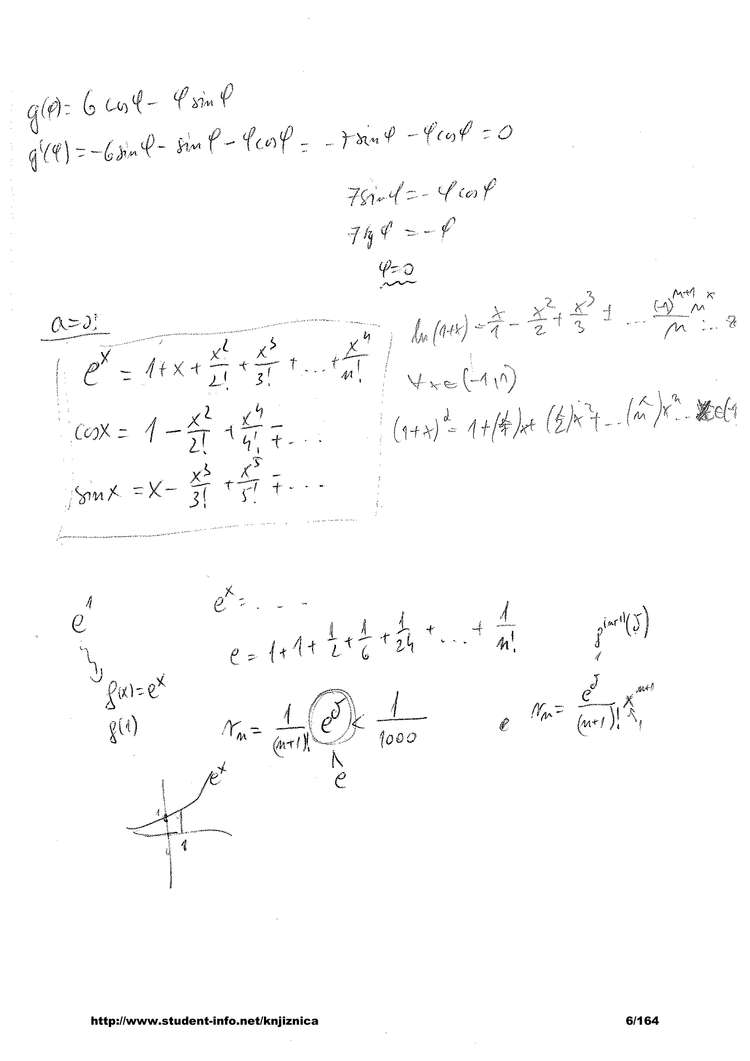 g(φ) = 6 cosφ - φ sinφ
g'(φ) = -6sinφ - sinφ - φcosφ = -7sinφ - φcosφ = 0
7sinφ = -φcosφ
7tgφ = -φ
φ=0
a=0!
e^x = 1+x+x^2/2!+x^3/3!+...+x^n/n!
cosx = 1 - x^2/2! + x^4/4! ∓ ...
sinx = x - x^3/3! + x^5/5! ∓ ...
ln(1+x) = x/1 - x^2/2 + x^3/3 ± ...
∀x∈(-1,1)
e^1
e^x = ....
e = 1+1+1/2+1/6+1/24+...+1/n!
f(x)=e^x
f(1)
r_n = 1/(n+1)! e^ϑ < 1/1000
e
f^(n+1)(ϑ)
r_n = e^ϑ/(n+1)! x^(n+1)
1
e^x
1
1
http://www.student-info.net/knjiznica 6/164